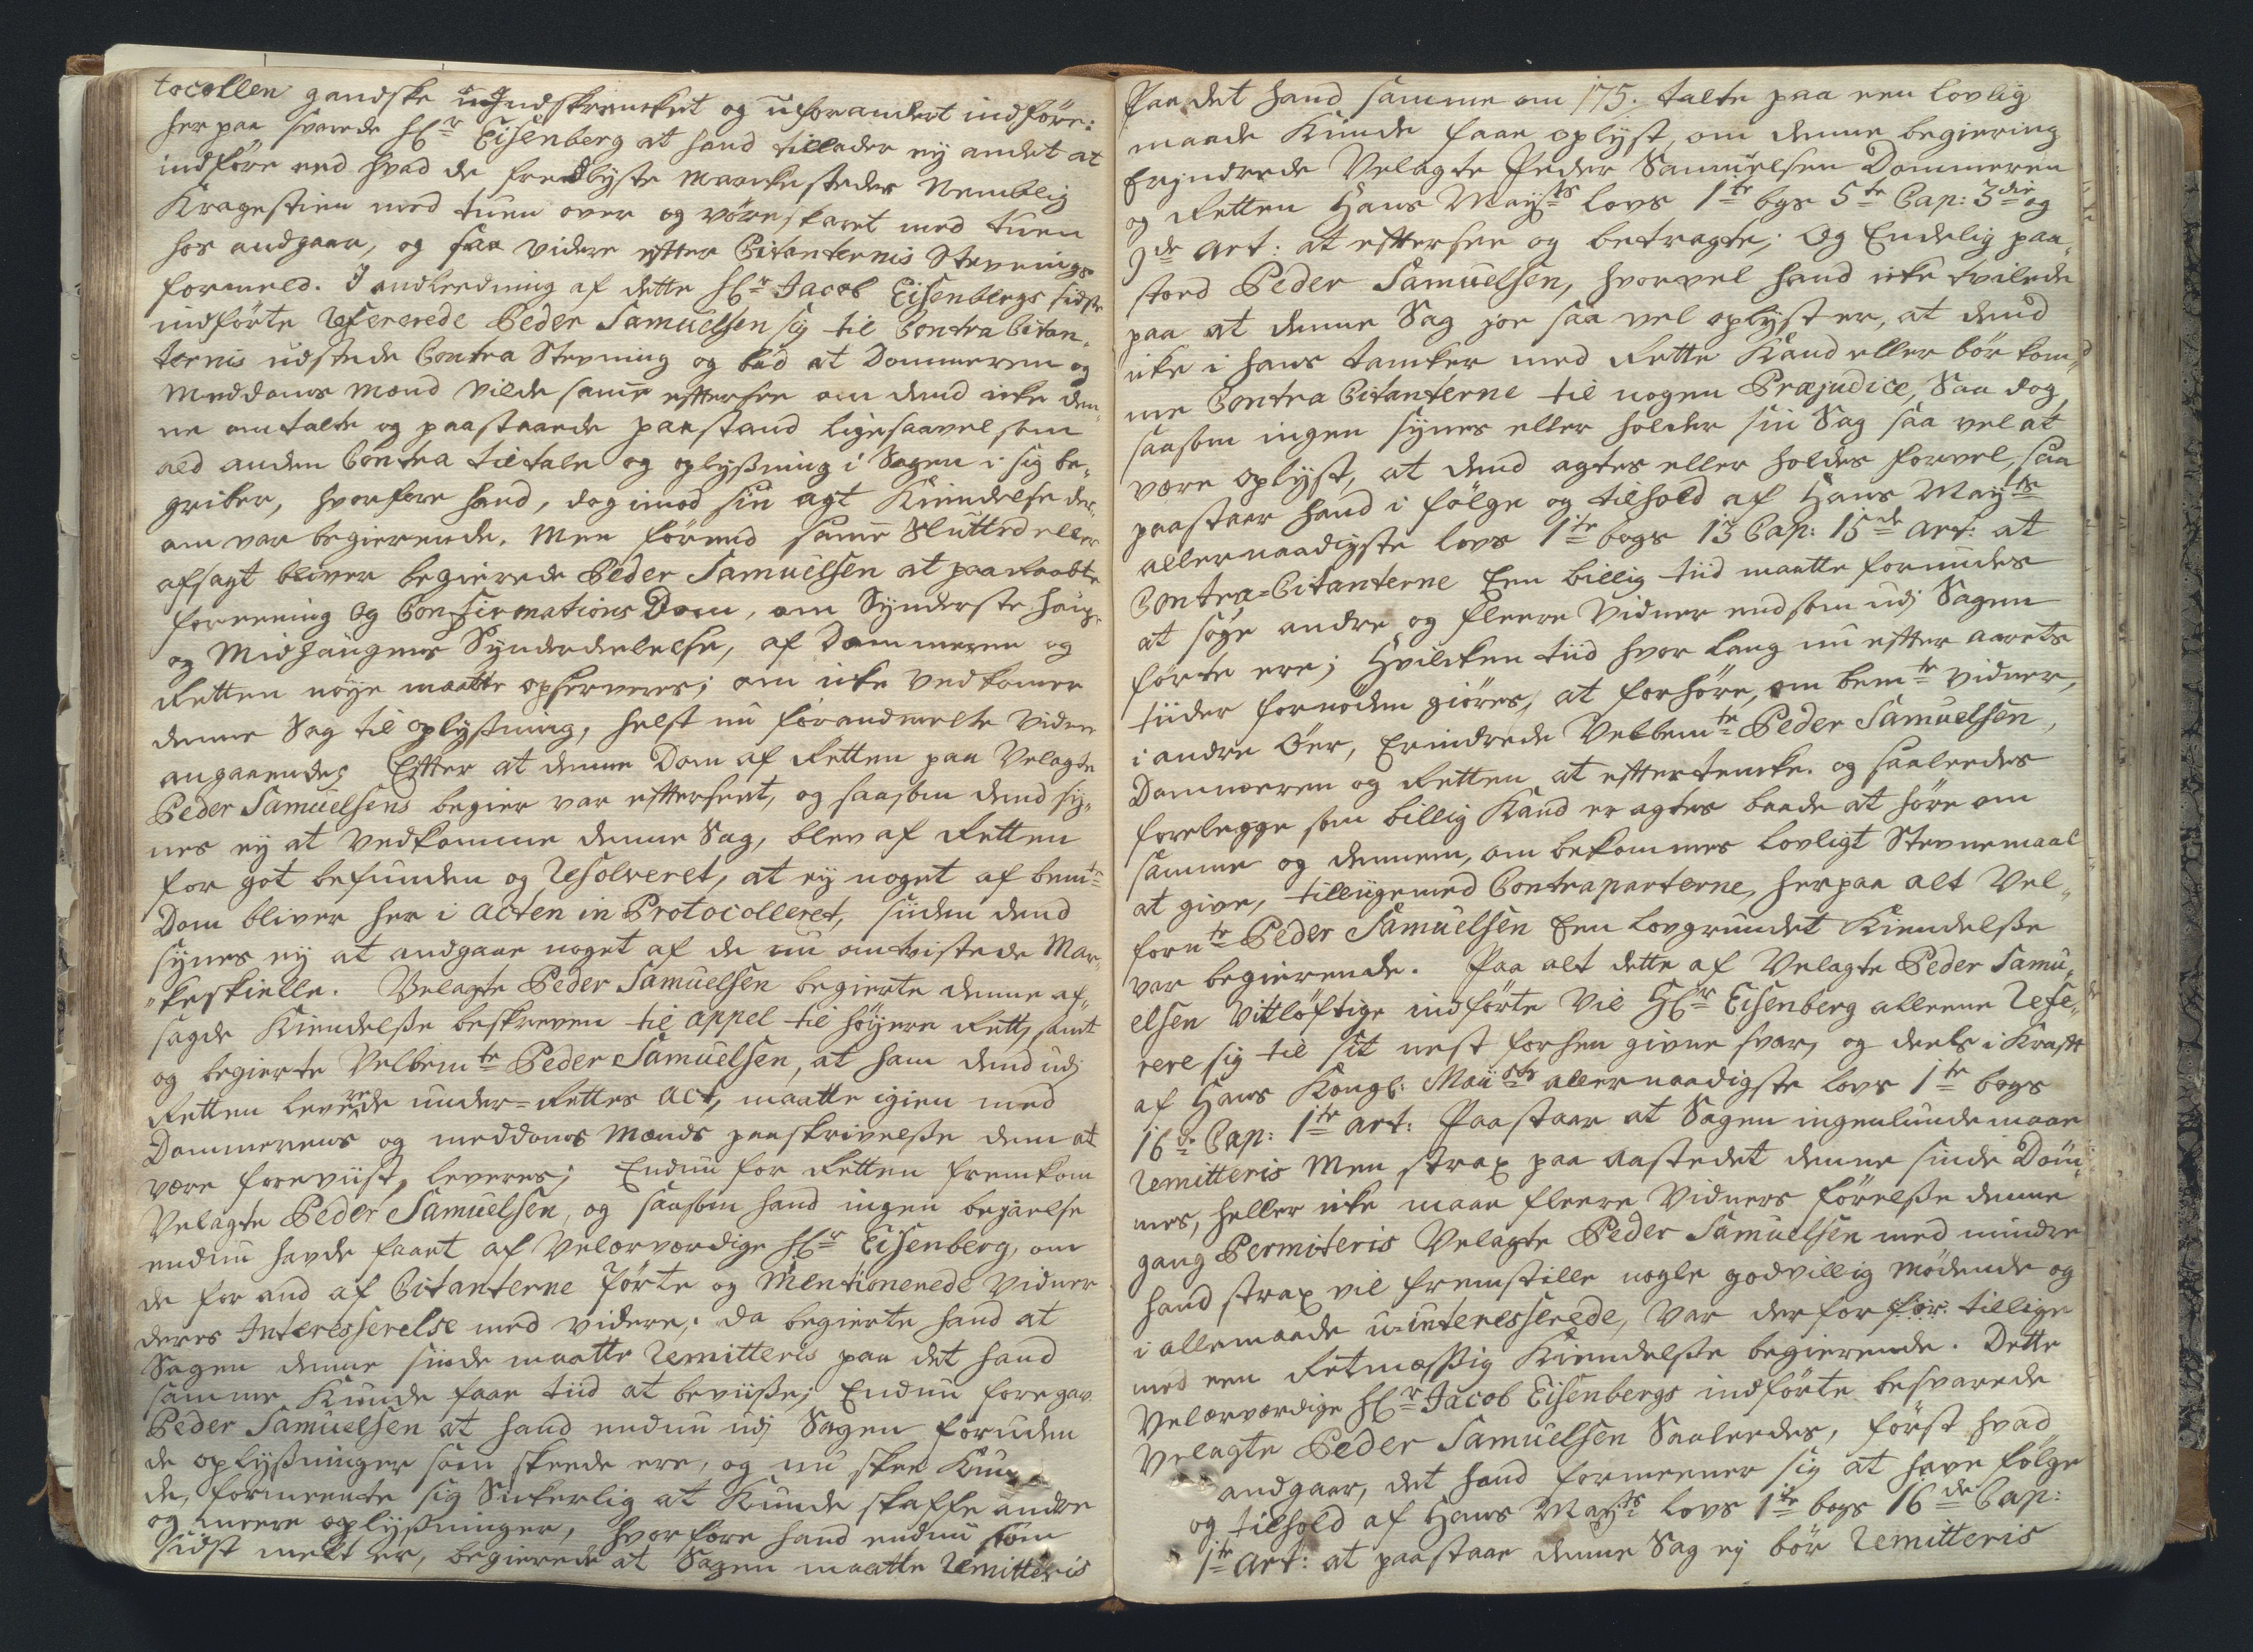 tocollen gandske uindskrencket og uforandert indføre:
her paa svarede Hr Eisenberg at hand tillader ey andet at
indføre end hvad de fredlyste marckesteder Nemblig
Kragestien med tuen over og vöreskaret med tuen
hos andgaar, og saa videre efter Citanternis Stevnings
formeld. I andleedning af dette Hr Jacob Eisenbergs sidste
indförte Refererede Peder Samuelsen sig til Contra Citan¬
ternis udstede Contra Stevning og bad at Dommeren og
Meddoms Mænd vilde samme efftersee om dend icke den¬
ne omtalte og paastaaende paastand ligesaavel som
ald anden Contra tiltale og oplysning i Sagen i sig be¬
griber, hvorfore hand, dog imod sin agt Kiendelse der¬
om var begierende. Men förend samme Slutted eller
afsagt bliver begierede Peder Samuelsen at paaraabte
foreening og Confirmations Dom, om Synderste Haug¬
og Midhaugens Synderdeelelse, af Dommeren og
Retten nöye maatte observeres; om icke vedkomer
denne Sag til oplysning, helst nu forandmelte viden
angaaende; Effter at denne Dom af Retten paa Velagte
Peder Samuelsens begier var efftersent, og saasom dend sy¬
nes ey at vedkomme denne Sag, blev af Retten
for got befunden og Resolveret, at ey noget af bemte
Dom bliver her i acten in Protocolleret, siden dend
synes ey at andgaar noget af de nu omtvistede Mar¬
keskielle. Velagte Peder Samuelsen begierte denne af¬
sagde Kiendelse beskreven til appel til höyere Rett, samt
og begierte Velbemte Peder Samuelsen, at ham dend udj
Retten leverede under-Rettes act, maatte igien med
Dommerens og meddoms Mænds paaskrivelse dem at
være foreviist, leveres; Endnu for Retten fremkom
Velagte Peder Samuelsen, og saasom hand ingen bejaelse
endnu havde faaet af Velærværdige Hr Eisenberg, om
de for and af Citanterne förte og Mentionerede Vidner
deres Interesserelse med videre, da begierte hand at
Sagen denne sinde maatte Remitteris paa det hand
samme Kunde faae tiid at beviise; Endnu foregav
Peder Samuelsen at hand endnu udj Sagen foruden
de oplysninger som skeede ere, og nu skee Kun¬
de, formeente sig Sickerlig at Kunde skaffe andre
og meere oplysninger, hvorfore hand endnu som
sidst melt er, begierede at Sagen maatte Remitteris
Paa det hand samme om 175. talte paa een lovlig
maade Kunde faae oplyst, om denne begiering
Erindrede Velagte Peder Samuelsen Dommeren
og Retten Hans Maysts lovs 1te bgs 5te Cap: 3die og
9de art: at effterser og betragte; Og Endelig paa¬
stod Peder Samuelsen, hvorvel hand icke tvilede
paa at denne Sag jo saa vel oplyst er, at dend
icke i hans tancker med Rette Kand eller bör kom¬
me Contra Citanterne til nogen Præjudice, Saa dog
saasom ingen synes eller holder sin Sag saa vel at
være oplyst, at dend agtes eller holdes forvel, saa
paastaar hand i fölge og tilhold af Hans Mayts
allernaadigste lovs 1te bogs 13 Cap: 15de art: at
Contra-Citanterne Een billig tiid maatte forundes
at söge andre og fleere Vidner end som udj Sagen
förte ere; Hvilcken tiid hvor lang nu effter aarets
tiider fornöden giöres, at forhöre, om bemte vidner,
i andre Öer, Erindrede Velbemte Peder Samuelsen,
Dommeren og Retten at effterstencke. og saaleedes
forelegge som billig Kand er agtes baade at höre om
samme og dennem, om bekommes lovligt Stevnemaal
at give, tilligemed Contraparterne, herpaa alt Vel¬
fornte Peder Samuelsen Een lovgrundet Kiendelsse
var begierende. Paa alt dette af Velagte Peder Samu¬
elsen Vitlöftige indförte vil Hr Eisenberg alleene Refe¬
rere sig til sit nest forhen givne svar, og deels i Krafft
af Hans Kongl: Maysts allernaadigste lovs 1te bogs
16de Cap: 1te art: Paastaar at Sagen ingenlunde maae
Remitteris Men strax paa aastedet denne sinde Döm¬
mes, heller icke maae fleere Vidners förelsse denne
gang Permiteris Velagte Peder Samuelsen med mindre
hand strax vil fremstille nogle godvillig mödende og
i allemaade u-interesserede, Var derfor for. tillige
med een Retmæssig Kiendelsse begierende. Dette
Velærværdige Hr Jacob Eisenbergs indförte besvarede
Velagte Peder Samuelsen Saaleedes, först hvad
andgaar, det hand formeener sig at have fölge
og tilhold af Hans Mayts lovs 1te bogs 16de Cap:
1te art: at paastaae denne Sag ey bör Remitteris